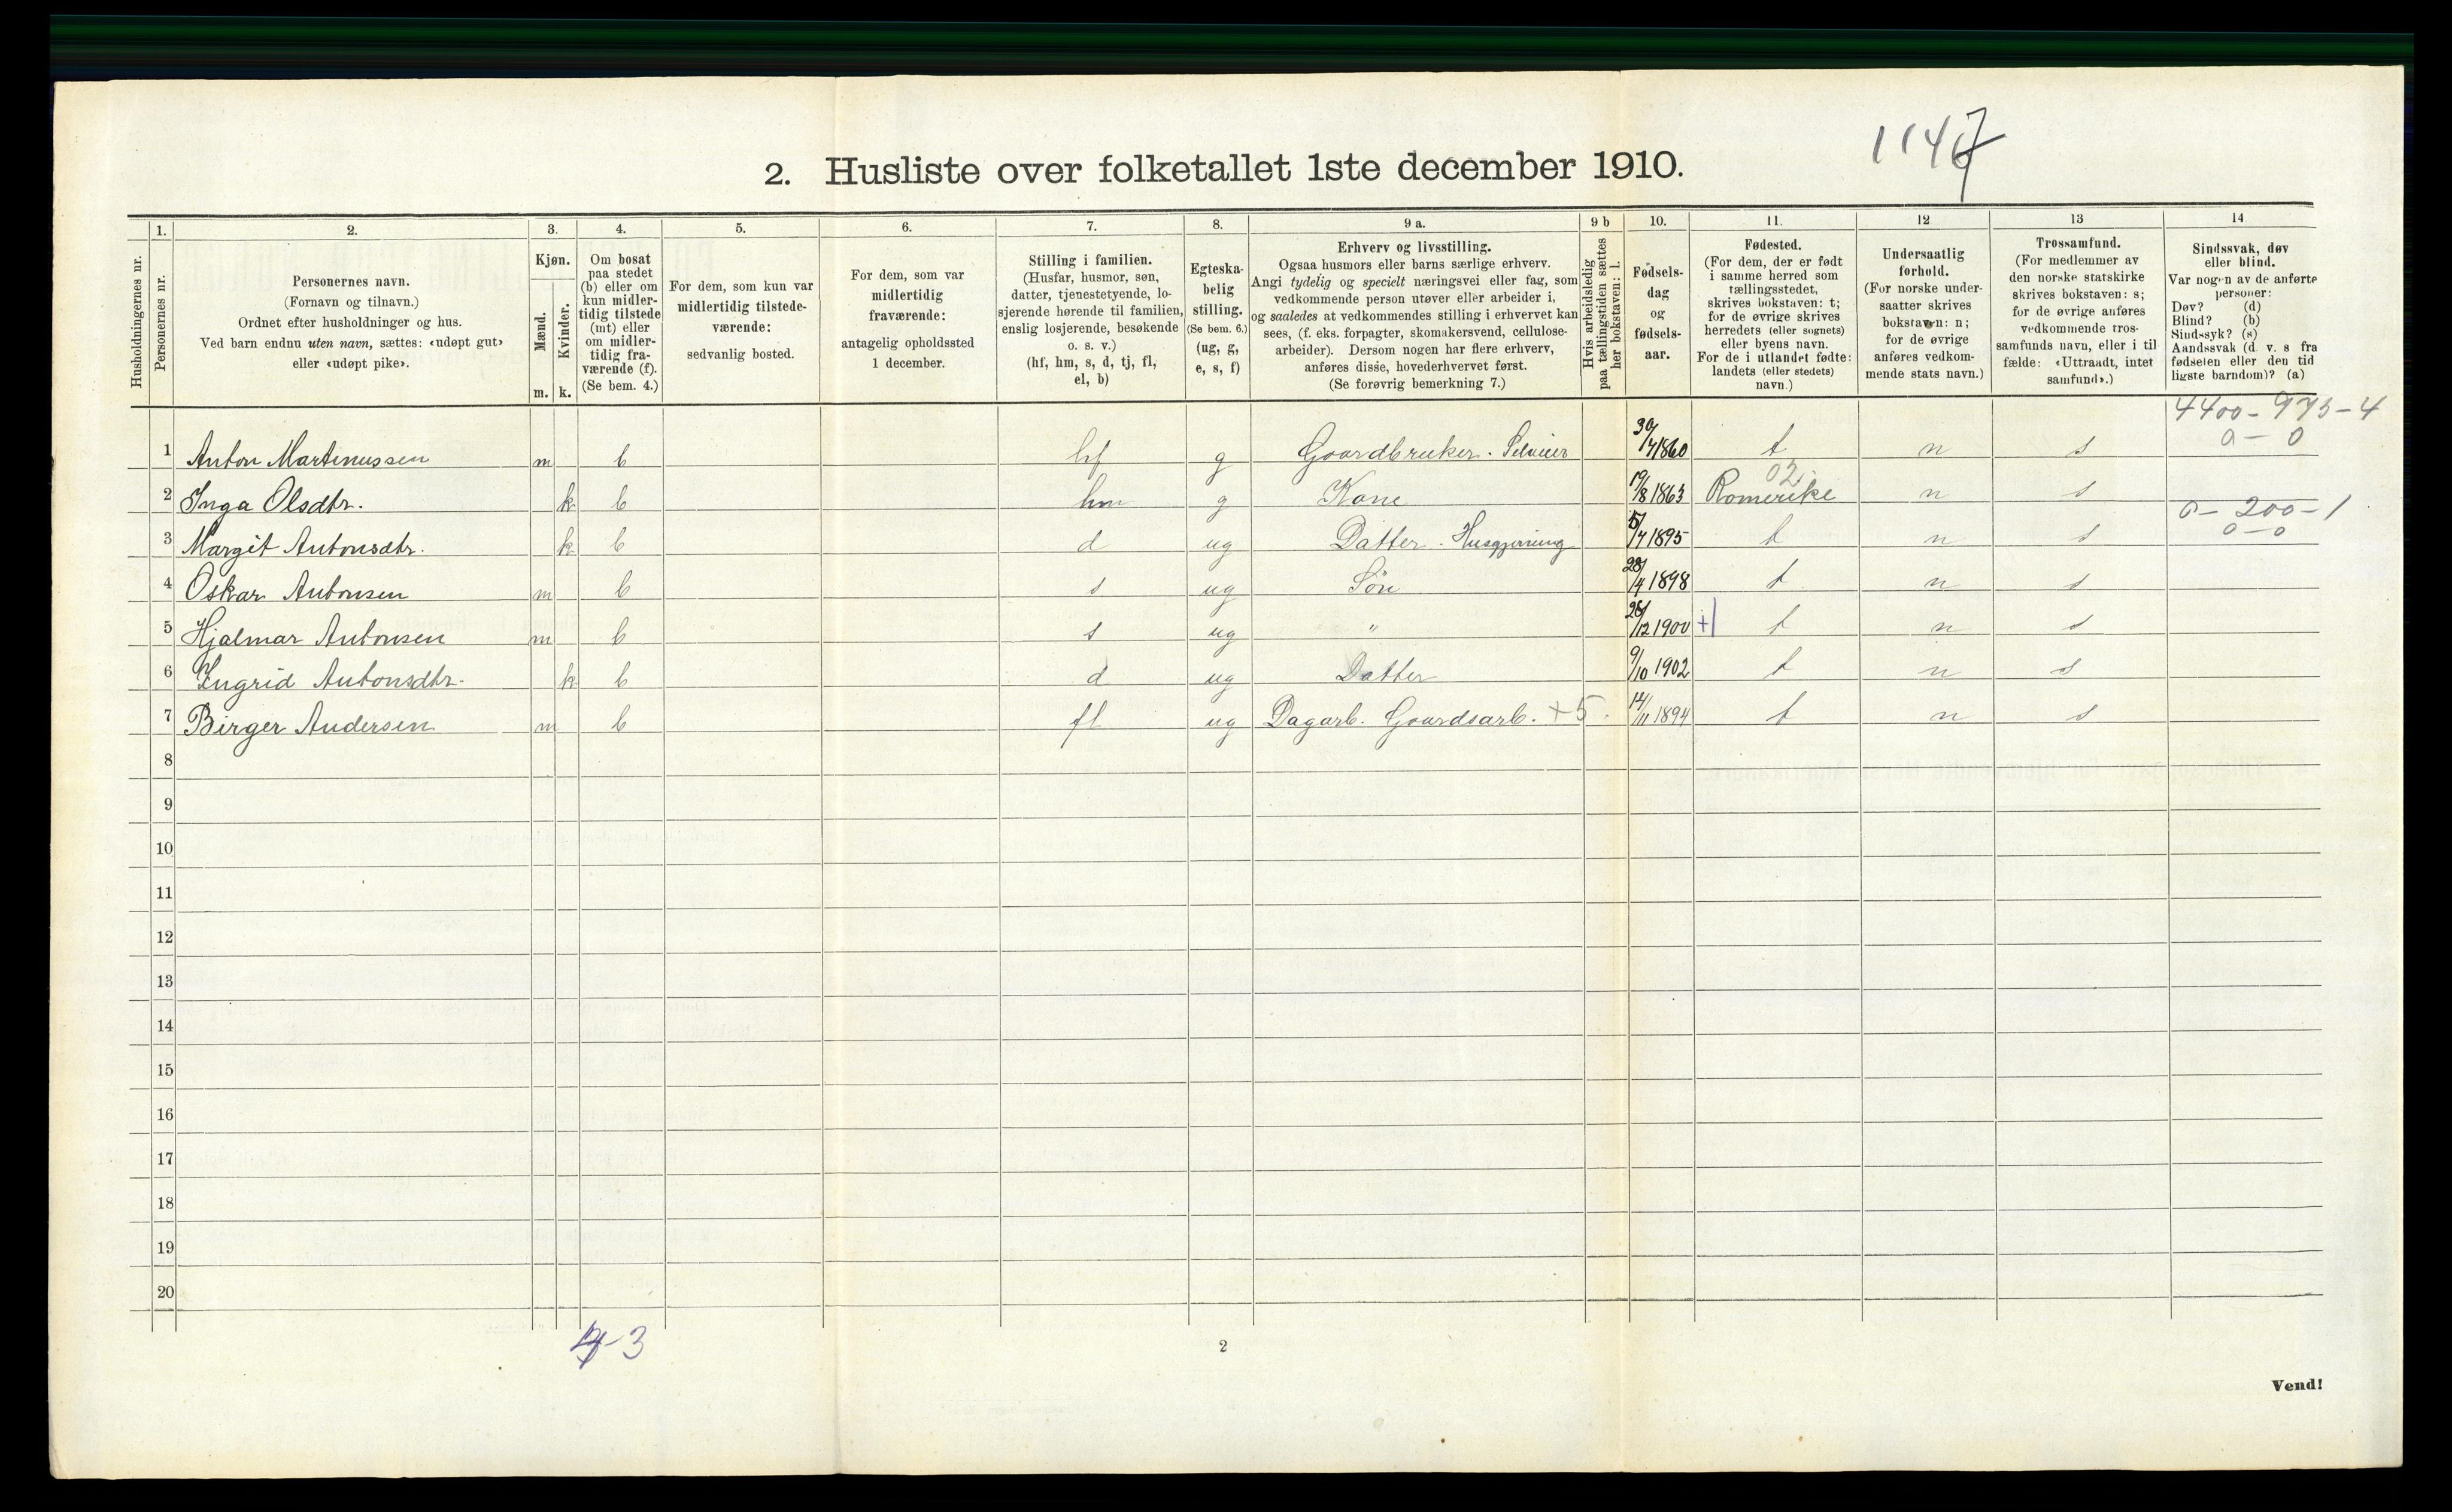 1147
2. Husliste over folketallet 1ste december 1910.
Husholdningernes nr.
1. Personernes nr.
2. Personernes navn.
(Fornavn og tilnavn.)
Ordnet efter husholdninger og hus.
Ved barn endnu uten navn, sættes: «udøpt gut»
eller «udøpt pike».
3. Kjøn.
Mænd. m.
Kvinder. k.
4. Om bosat
paa stedet
(b) eller om
kun midler-
tidig tilstede
(mt) eller
om midler-
tidig fra-
værende (f).
(Se bem. 4.)
5. For dem, som kun var
midlertidig tilstede-
værende:
sedvanlig bosted.
6. For dem, som var
midlertidig
fraværende:
antagelig opholdssted
1 december.
7. Stilling i familien.
(Husfar, husmor, søn,
datter, tjenestetyende, lo-
sjerende hørende til familien,
enslig losjerende, besøkende
o. s. v.)
(hf, hm, s, d, tj, fl,
el, b)
8. Egteska-
belig
stilling.
(Se bem. 6.)
(ug, g,
e, s, f)
9 a. Erhverv og livsstilling.
Ogsaa husmors eller barns særlige erhverv.
Angi tydelig og specielt næringsvei eller fag, som
vedkommende person utøver eller arbeider i,
og saaledes at vedkommendes stilling i erhvervet kan
sees, (f. eks. forpagter, skomakersvend, cellulose-
arbeider). Dersom nogen har flere erhverv,
anføres disse, hovederhvervet først.
(Se forøvrig bemerkning 7.)
9 b Hvis arbeidsledig
paa tællingstiden sættes
her bokstaven: l.
10. Fødsels-
dag
og
fødsels-
aar.
11. Fødested.
(For dem, der er født
i samme herred som
tællingsstedet,
skrives bokstaven: t;
for de øvrige skrives
herredets (eller sognets)
eller byens navn.
For de i utlandet fødte:
landets (eller stedets)
navn.)
12 Undersaatlig
forhold.
(For norske under-
saatter skrives
bokstaven: n;
for de øvrige
anføres vedkom-
mende stats navn.)
13 Trossamfund.
(For medlemmer av
den norske statskirke
skrives bokstaven: s;
for de øvrige anføres
vedkommende tros-
samfunds navn, eller i til
fælde: «Uttraadt, intet
samfund».)
14 Sindssvak, døv
eller blind.
Var nogen av de anførte
personer:
Døv? (d)
Blind? (b)
Sindssyk? (s)
Aandssvak (d. v. s fra
fødselen eller den tid
ligste barndom)? (a)
4400 - 975 - 4
0 - 0
1 Anton Martinussen m b hf g Gaardbruker. Selveier 30/7 1860 t n s
02
2 Inga Olsdtr. k b hm g Kone 19/8 1863 Romerike n s
0 - 200 - 1
0 - 0
3 Margit Antonsdtr. k b d ug Datter. Husgjerning 5/7 1895 t n s
4 Oskar Antonsen m b s ug Søn 28/4 1898 t n s
5 Hjalmar Antonsen m b s ug " 26/12 1900 +1 t n s
6 Ingrid Antonsdtr. k b d ug Datter 9/10 1902 t n s
7 Birger Andersen m b fl ug Dagarb. Gaardsarb. +5. 14/11 1894 t n s
8
9
10
11
12
13
14
15
16
17
18
19
20
4-3
2
Vend!